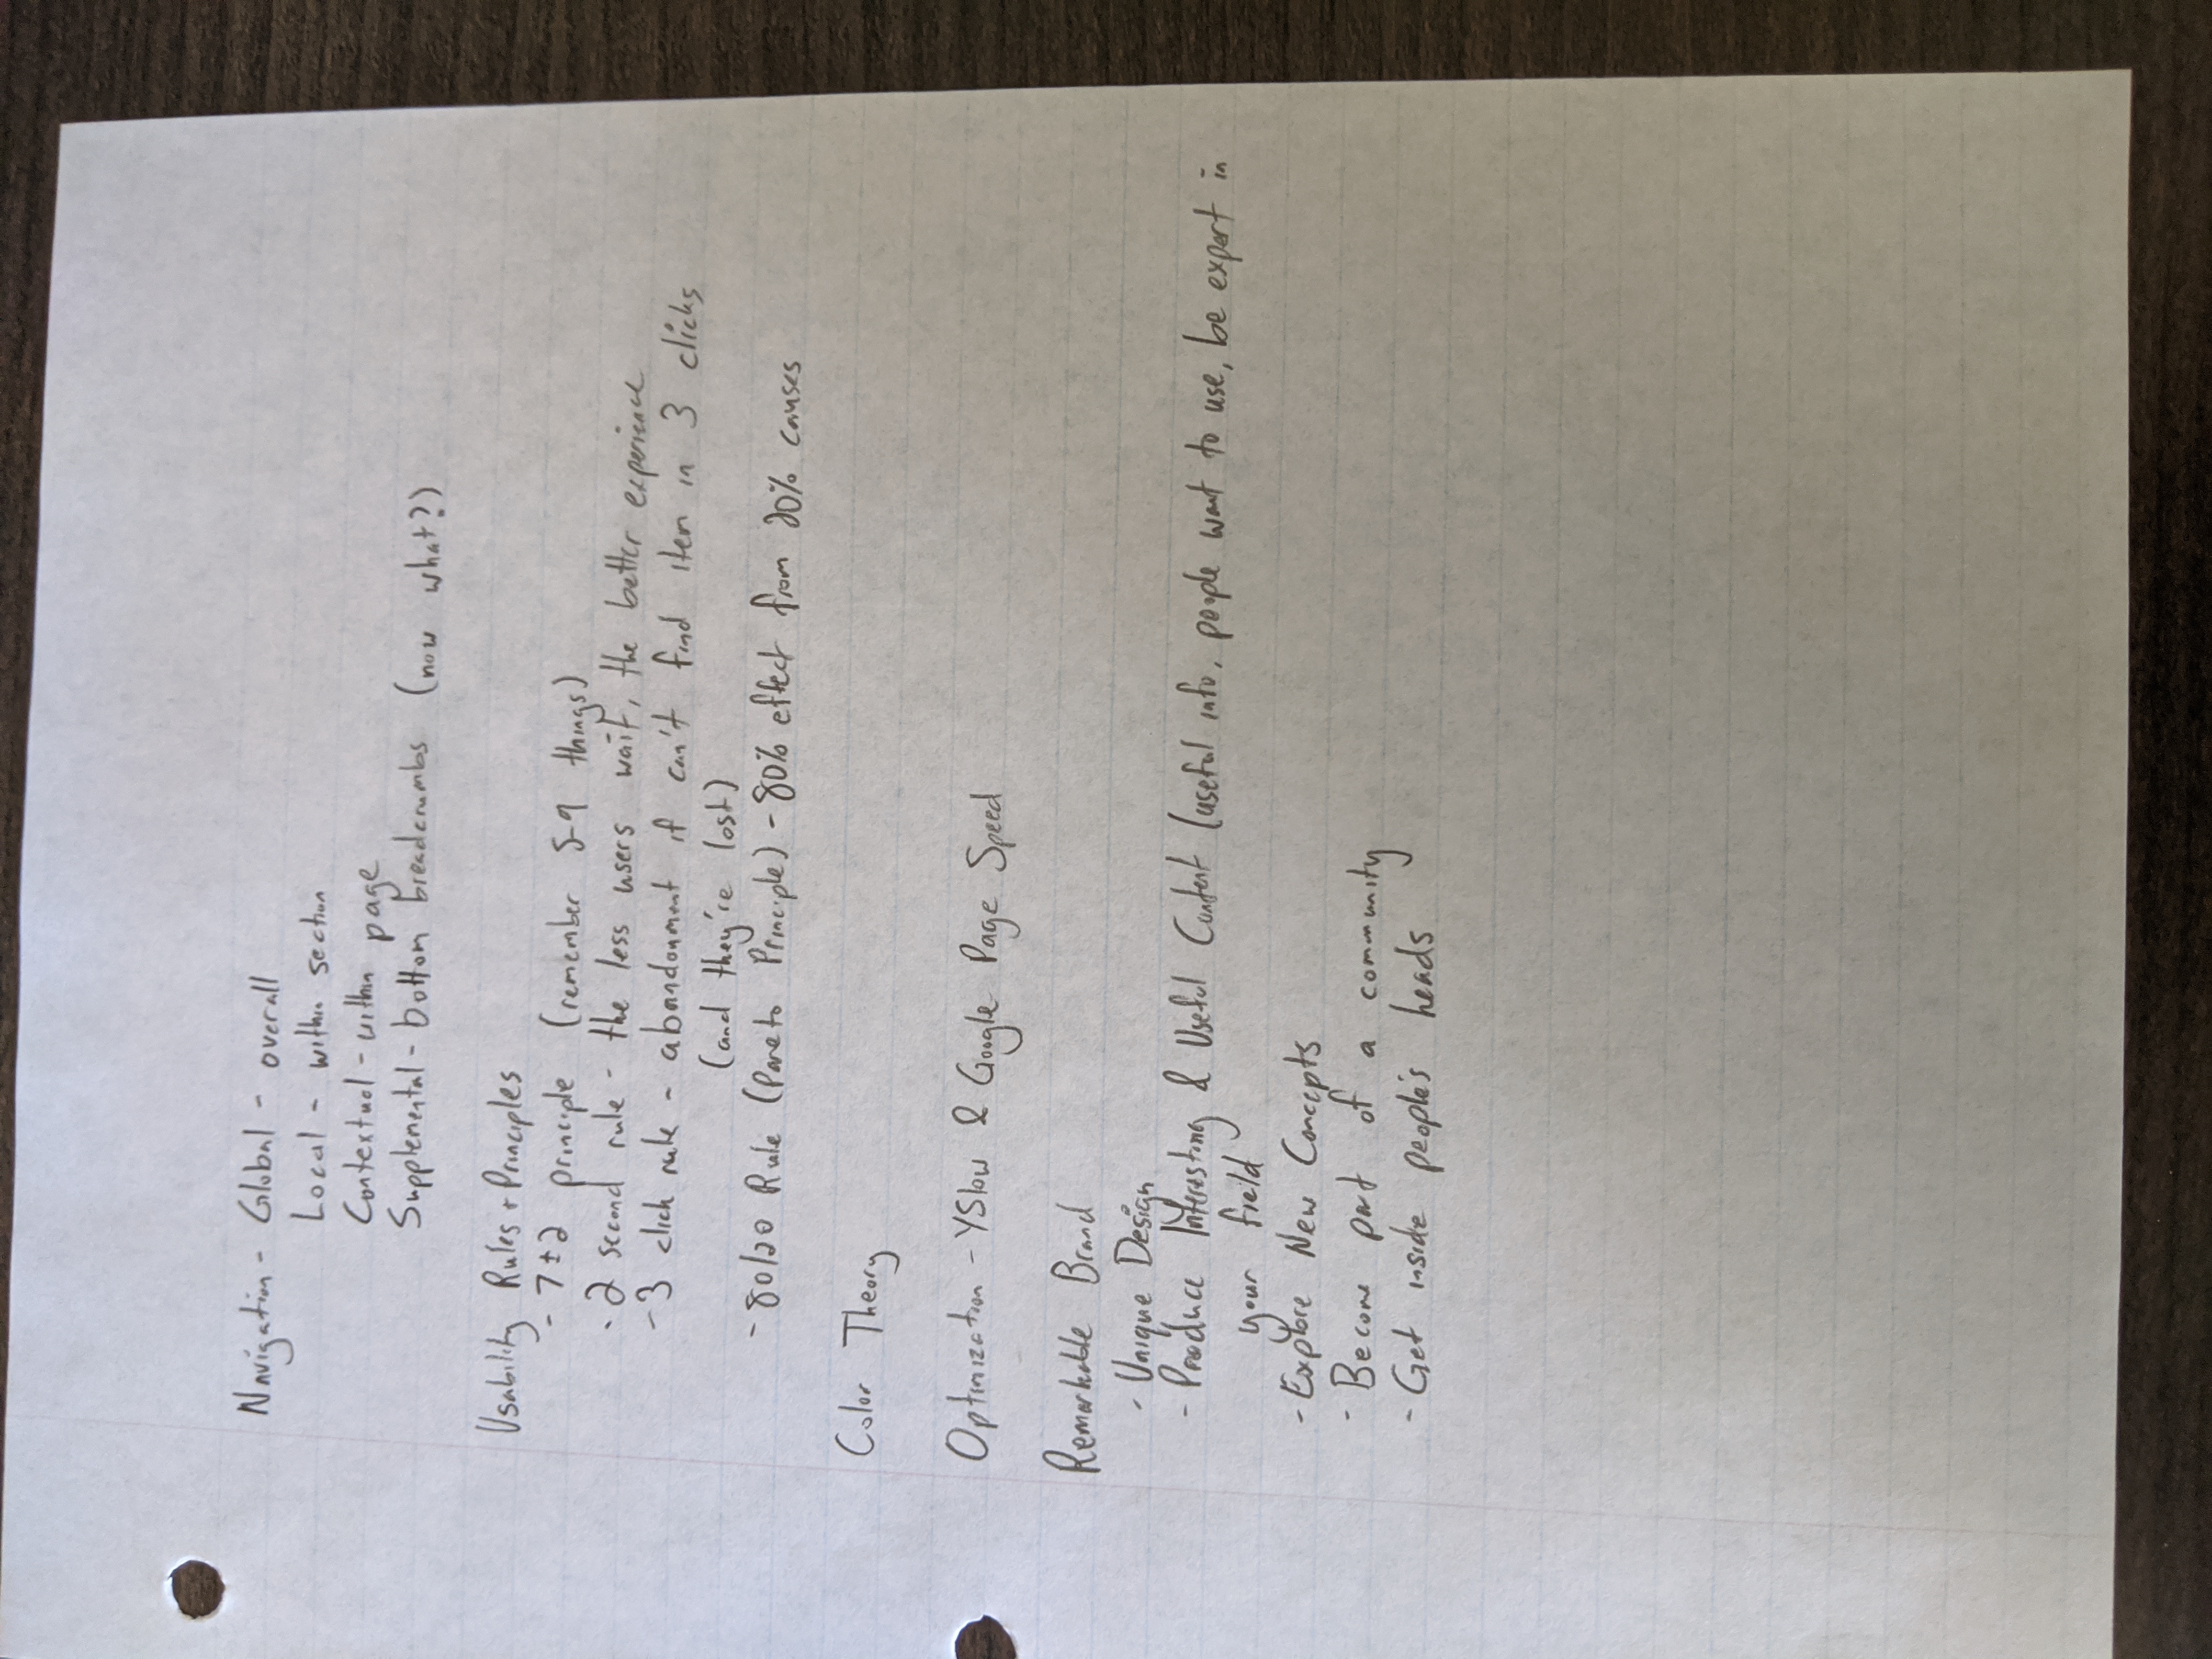 Navigation - Global - overall
Local - within section
Contextual - within page
Supplemental - bottom breadcrumbs (now what?)
Usability Rules + Principles
- 7±2 principle (remember 5-9 things)
- 2 second rule - the less users wait, the better experience
- 3 click rule - abandonment if can't find item in 3 clicks
(and they're lost)
- 80/20 Rule (Pareto Principle) - 80% effect from 20% causes
Color Theory
Optimization - YSlow & Google Page Speed
Remarkable Brand
- Unique Design
- Produce Interesting & Useful Content (useful info, people want to use, be expert in
your field
- Explore New Concepts
- Become part of a community
- Get inside people's heads